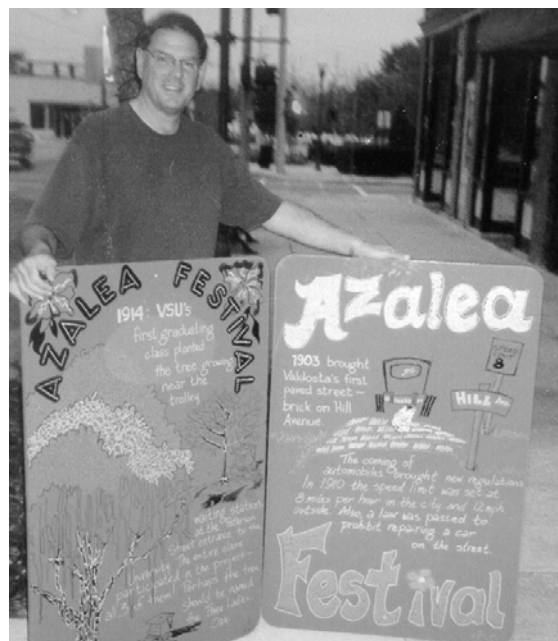 AZALEA FESTIVAL
1914: VSU's
first graduating
class planted
the tree growing
near the
trolley
waiting station
at the Patterson
Street entrance to the
University. The entire class
participated in the project—
all 3 of them! Perhaps the tree
should be named
the Three Ladies
Oak.
Azalea
1903 brought
Valdosta's first
paved street—
brick on Hill
Avenue.
SPEED
8
HILL Ave
The coming of
automobiles brought new regulations.
In 1910 the speed limit was set at
8 miles per hour in the city and 12 mph
outside. Also, a law was passed to
prohibit repairing a car
on the street.
Festival